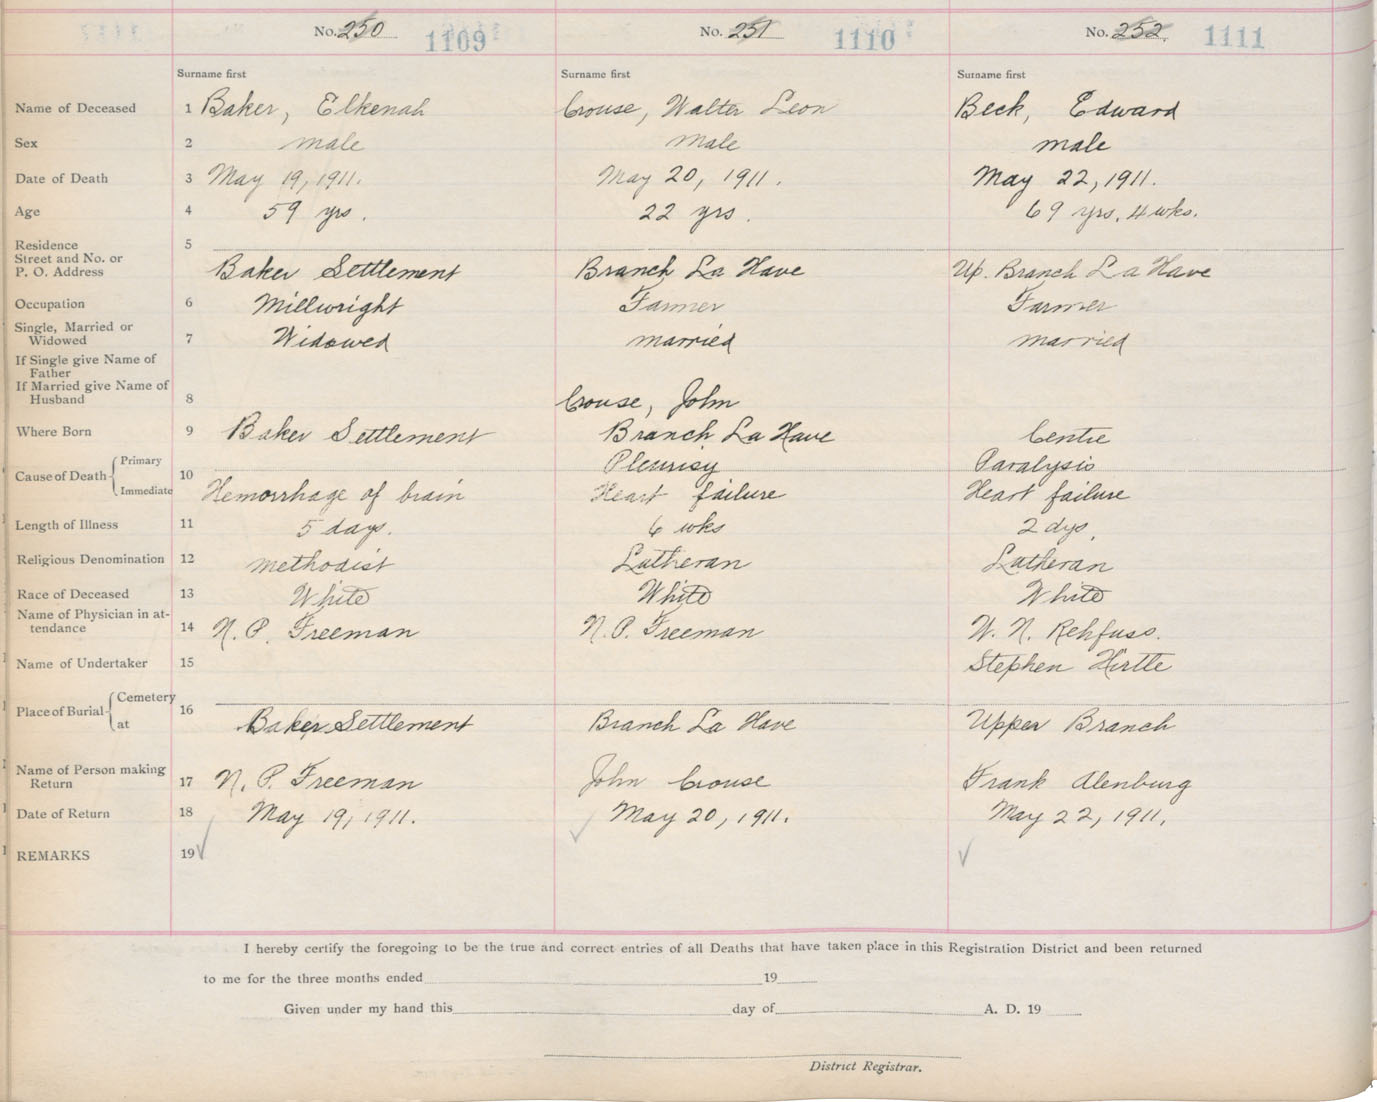 No. 250 1109 No. 251 1110 No. 252. 1111
Surname first Surname first Surname first
Name of Deceased 1 Baker, Elkenah Crouse, Walter Leon Beck, Edward
Sex 2 male male male
Date of Death 3 May 19, 1911. May 20, 1911. May 22, 1911.
Age 4 59 yrs. 22 yrs. 69 yrs, 4 wks.
Residence 5
Street and No. or
P. O. Address Baker Settlement Branch La Have Up. Branch La Have
Occupation 6 Millwright Farmer Farmer
Single, Married or
Widowed 7 Widowed married married
If Single give Name of
Father
If Married give Name of
Husband 8 Crouse, John
Where Born 9 Baker Settlement Branch La Have Centre
Cause of Death Primary 10 Pleurisy Paralysis
Immediate Hemorrhage of brain Heart failure Heart failure
Length of Illness 11 5 days. 6 wks 2 dys.
Religious Denomination 12 methodist Lutheran Lutheran
Race of Deceased 13 White White White
Name of Physician in at-
tendance 14 N. P. Freeman N. P. Freeman W. N. Rehfuss.
Name of Undertaker 15 Stephen Hirtle
Place of Burial Cemetery 16
at Baker Settlement Branch La Have Upper Branch
Name of Person making
Return 17 N. P. Freeman John Crouse Frank Alenburg
Date of Return 18 May 19, 1911. May 20, 1911. May 22, 1911.
REMARKS 19
I hereby certify the foregoing to be the true and correct entries of all Deaths that have taken place in this Registration District and been returned
to me for the three months ended 19
Given under my hand this day of A. D. 19
District Registrar.